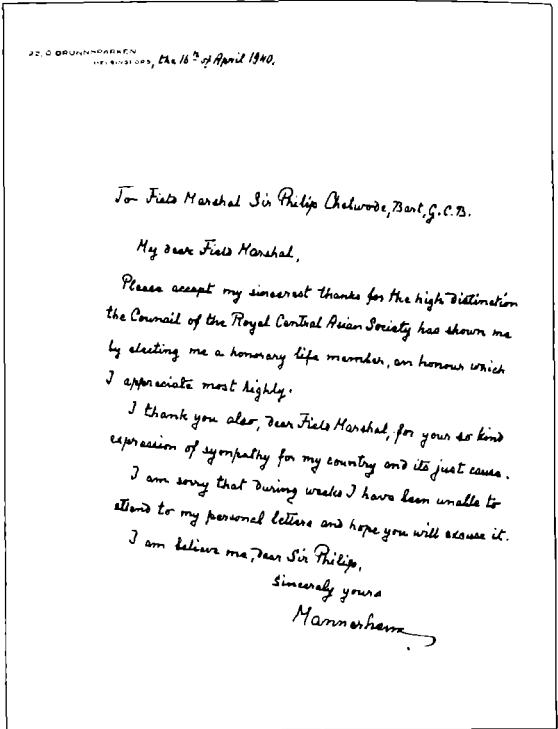 22, Ö BRUNNSPARKEN
HELSINGFORS, the 16th of April 1940.
To Field Marshal Sir Philip Chetwode, Bart, G.C.B.
My dear Field Marshal,
Please accept my sincerest thanks for the high distinction
the Council of the Royal Central Asian Society has shown me
by electing me a honorary life member, an honour which
I appreciate most highly.
I thank you also, dear Field Marshal, for your so kind
expression of sympathy for my country and its just cause.
I am sorry that during weeks I have been unable to
attend to my personal letters and hope you will excuse it.
I am believe me, dear Sir Philip,
Sincerely yours
Mannerheim